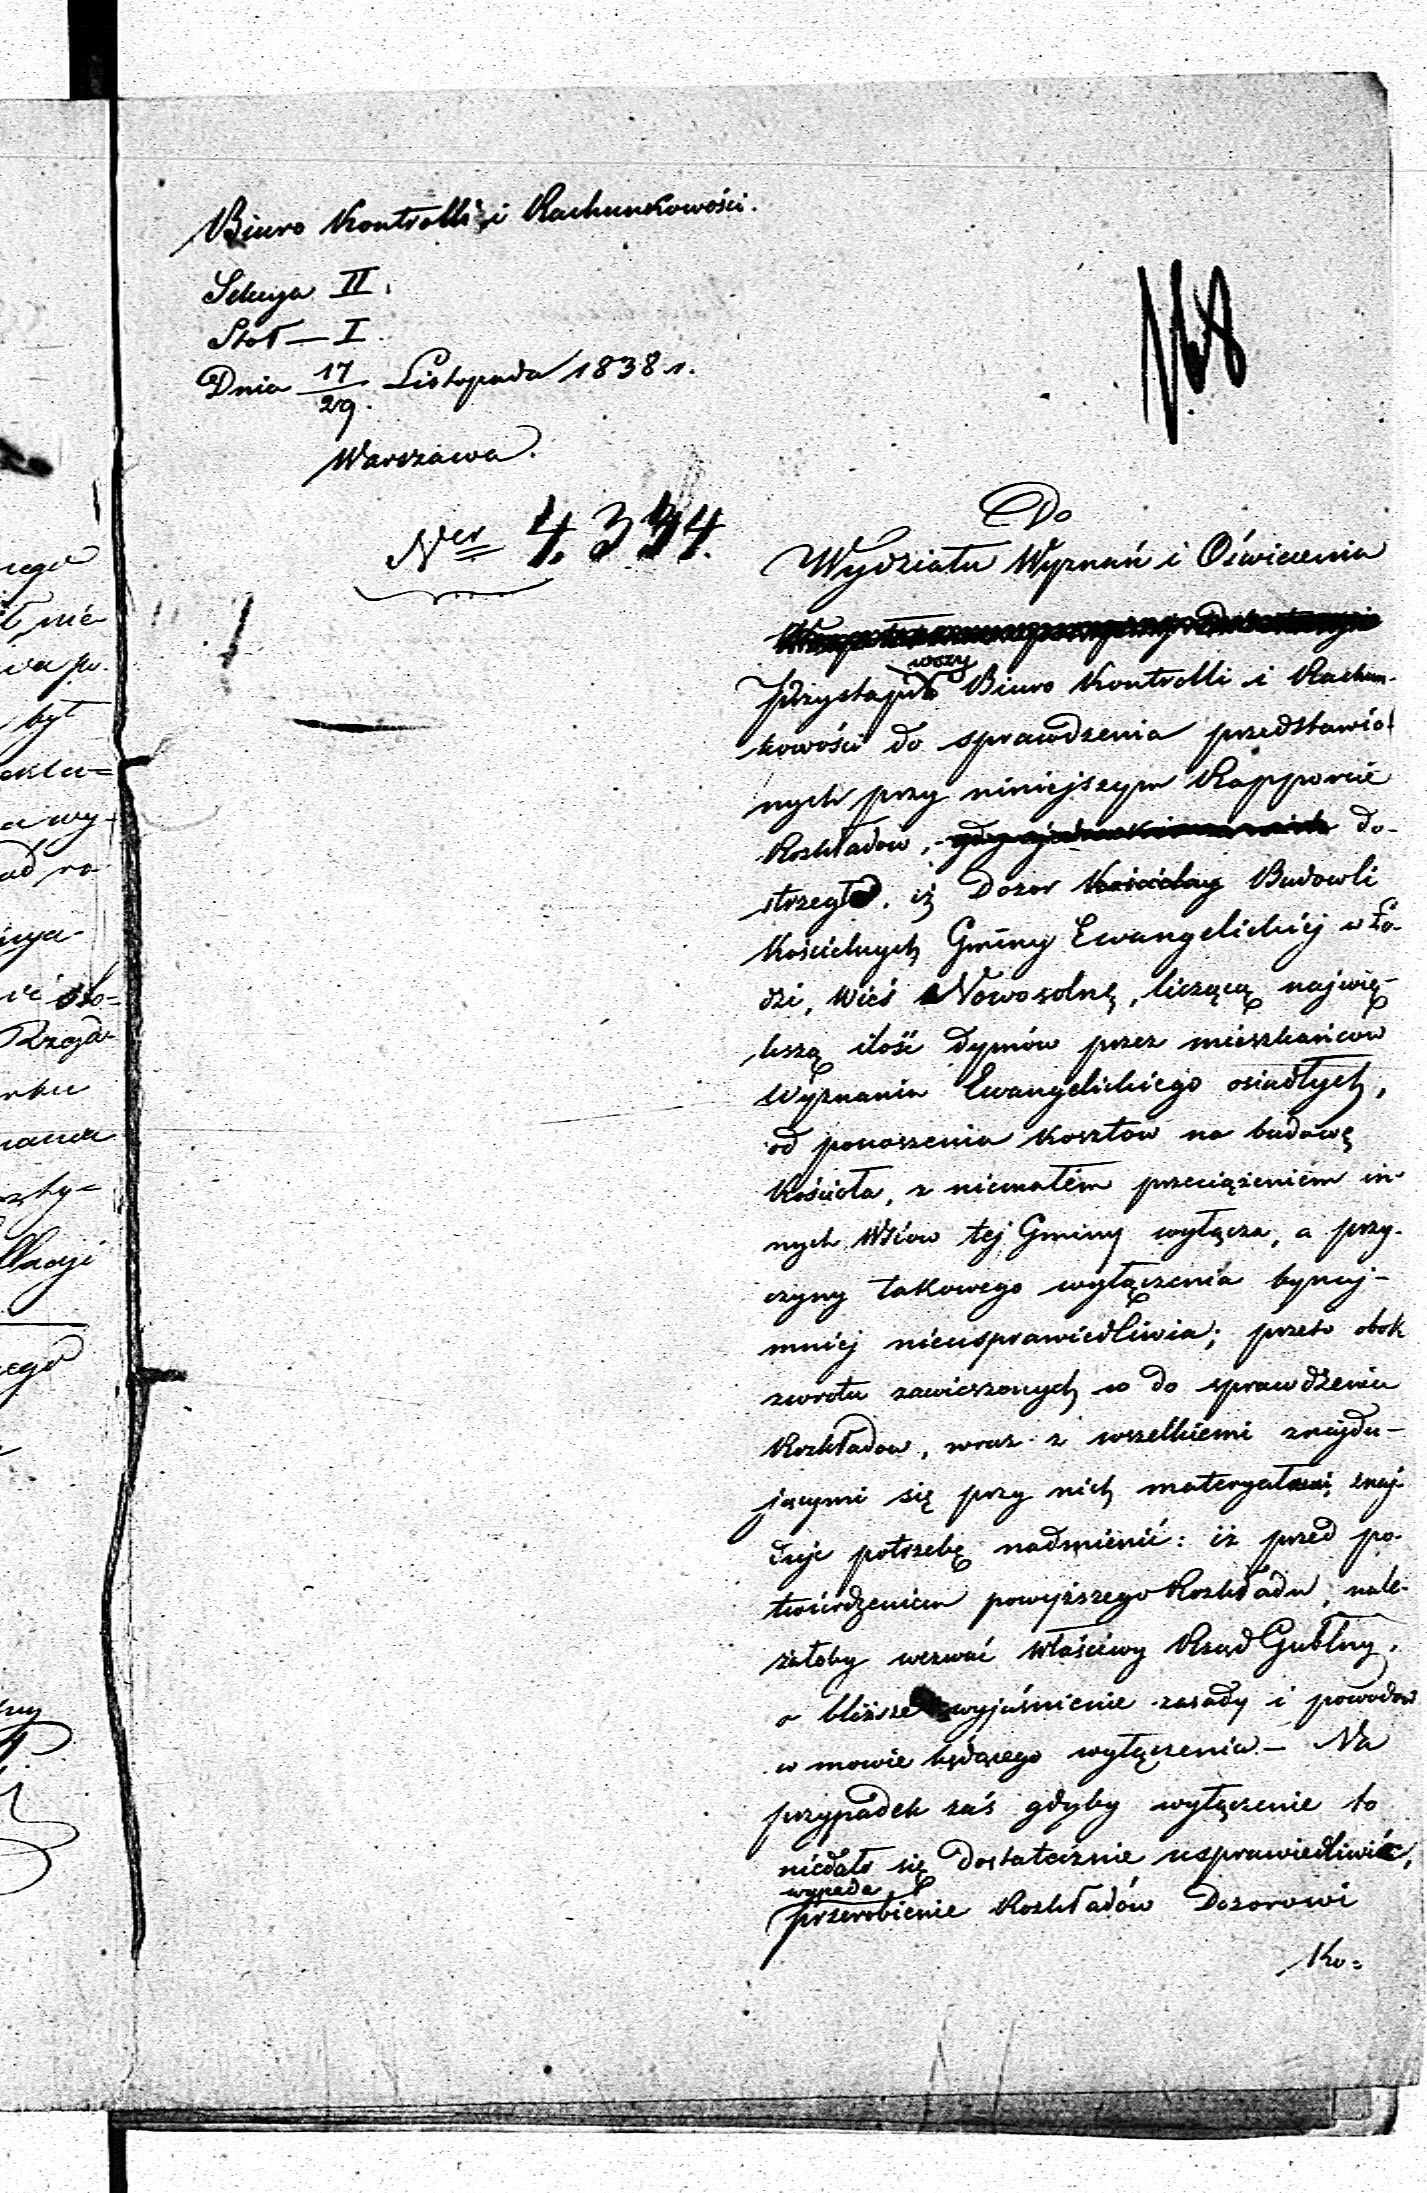 Biuro Kontrolli i Rachunkowości.
Sekcya II.
Stół — I.
Dnia 17/29. Listopada 1838 r.
Warszawa.
Ner 4,344.
Do
Wydziału Wyznań i Oświecenia
wszy
Przystąpi Biuro Kontrolli i Rachun-
kowości do sprawdzenia przedstawio-
nych przy niniejszym Rapporcie
Rozkładow, do-
strzegło, iż Dozor Kościelny Budowli
Kościelnych Gminy Ewangelickiéj w Ło-
dzi, Wieś Nowosolnę, liczącą najwię-
kszą ilość dymów przez mieszkańców
Wyznania Ewangelickiego osiadłych,
od ponoszenia kosztow na budowę
Kościoła, z niemałém przeciążeniem in-
nych Wsiow tej Gminy wyłącza, a przy-
czyny takowego wyłączenia bynaj-
mniéj nieusprawiedliwia; przeto obok
zwrotu zawieszonych w do sprawdzeniu
Rozkładow, wraz z wszelkiemi znajdu-
jącymi się przy nich materyałami, znaj-
duje potrzebę nadmienić: iż przed po-
twierdzeniem powyższego Rozkładu, nale-
żałoby wezwać Właściwy Rząd Gubłny,
o bliższe wyjaśnienie zasady i powodow
w mowie będącego wyłączenia. — Na
przypadek zaś gdyby wyłączenie to
niedało się dostatecznie usprawiedliwić,
wypada
przerobienie Rozkładów Dozorowi
Ko=